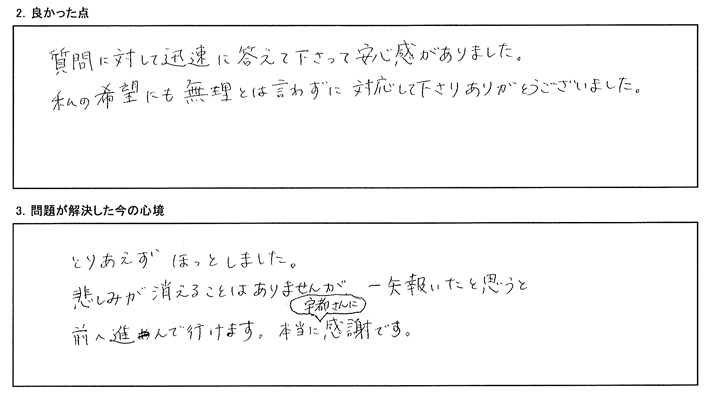 2. 良かった点
質問に対して迅速に答えて下さって安心感がありました。
私の希望にも無理とは言わずに対応して下さりありがとうございました。
3. 問題が解決した今の心境
とりあえずほっとしました。
悲しみが消えることはありませんが 一矢報いたと思うと
宇都さんに
前へ進んで行けます。本当に感謝です。